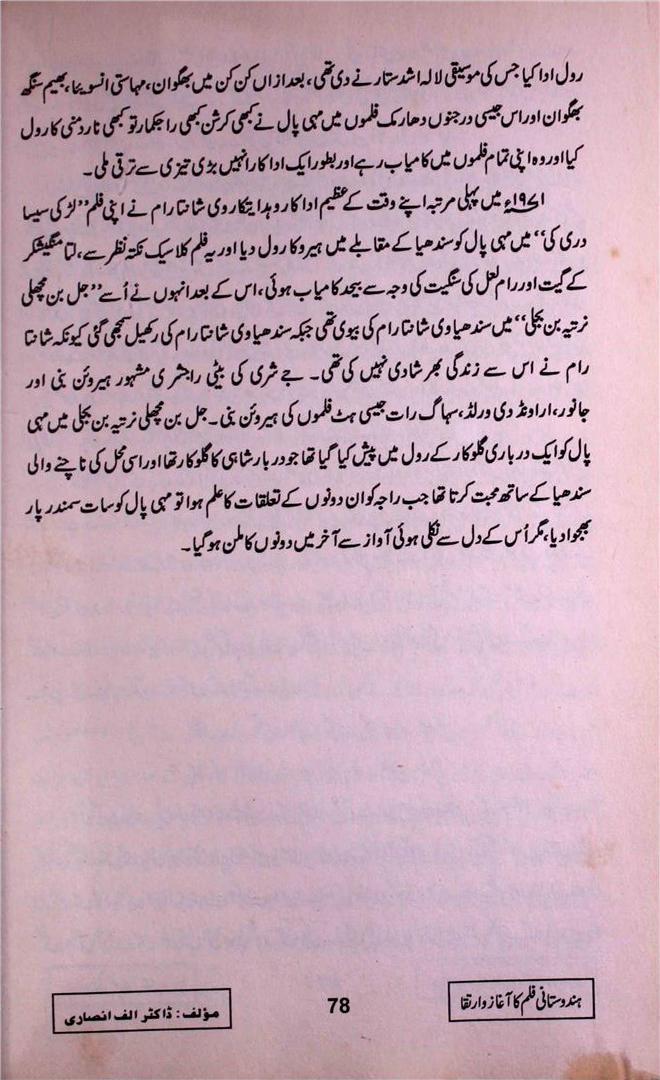 رول ادا کیا جس کی موسیقی لالہ اشد ستار نے دی تھی، بعد ازاں کن کن میں بھگوان، مہاستی انسویٹا، بھیم سنگھ
بھگوان اور اس جیسی درجنوں دھارمک فلموں میں مہی پال نے کبھی کرشن کبھی راجکمار تو کبھی ناردمنی کا رول
کیا اور وہ اپنی تمام فلموں میں کامیاب رہے اور بطور ایک اداکار انہیں بڑی تیزی سے ترقی ملی۔
۱۹۷۱ء میں پہلی مرتبہ اپنے وقت کے عظیم اداکار و ہدایتکار وی شانتا رام نے اپنی فلم ”لڑکی سیسا
دری کی“ میں مہی پال کو سندھیا کے مقابلے میں ہیرو کا رول دیا اور یہ فلم کلاسیک نکتہ نظر سے، لتا منگیشکر
کے گیت اور رام لعل کی سنگیت کی وجہ سے بیحد کامیاب ہوئی، اس کے بعد انہوں نے اُسے ”جل بن مچھلی
نرتیہ بن بجلی“ میں سندھیا وی شانتا رام کی بیوی تھی جبکہ سندھیا وی شانتا رام کی رکھیل سمجھی گئی کیونکہ شانتا
رام نے اس سے زندگی بھر شادی نہیں کی تھی۔ جے شری کی بیٹی راجشری مشہور ہیروئن بنی اور
جانور، اراونڈ دی ورلڈ، سہاگ رات جیسی ہٹ فلموں کی ہیروئن بنی۔ جل بن مچھلی نرتیہ بن بجلی میں مہی
پال کو ایک درباری گلوکار کے رول میں پیش کیا گیا تھا جو دربار شاہی کا گلوکار تھا اور اسی محل کی ناچنے والی
سندھیا کے ساتھ محبت کرتا تھا جب راجہ کو ان دونوں کے تعلقات کا علم ہوا تو مہی پال کو سات سمندر پار
بھجوا دیا، مگر اُس کے دل سے نکلی ہوئی آواز سے آخر میں دونوں کا ملن ہو گیا۔
ہندوستانی فلم کا آغاز و ارتقا
78
مؤلف: ڈاکٹر الف انصاری